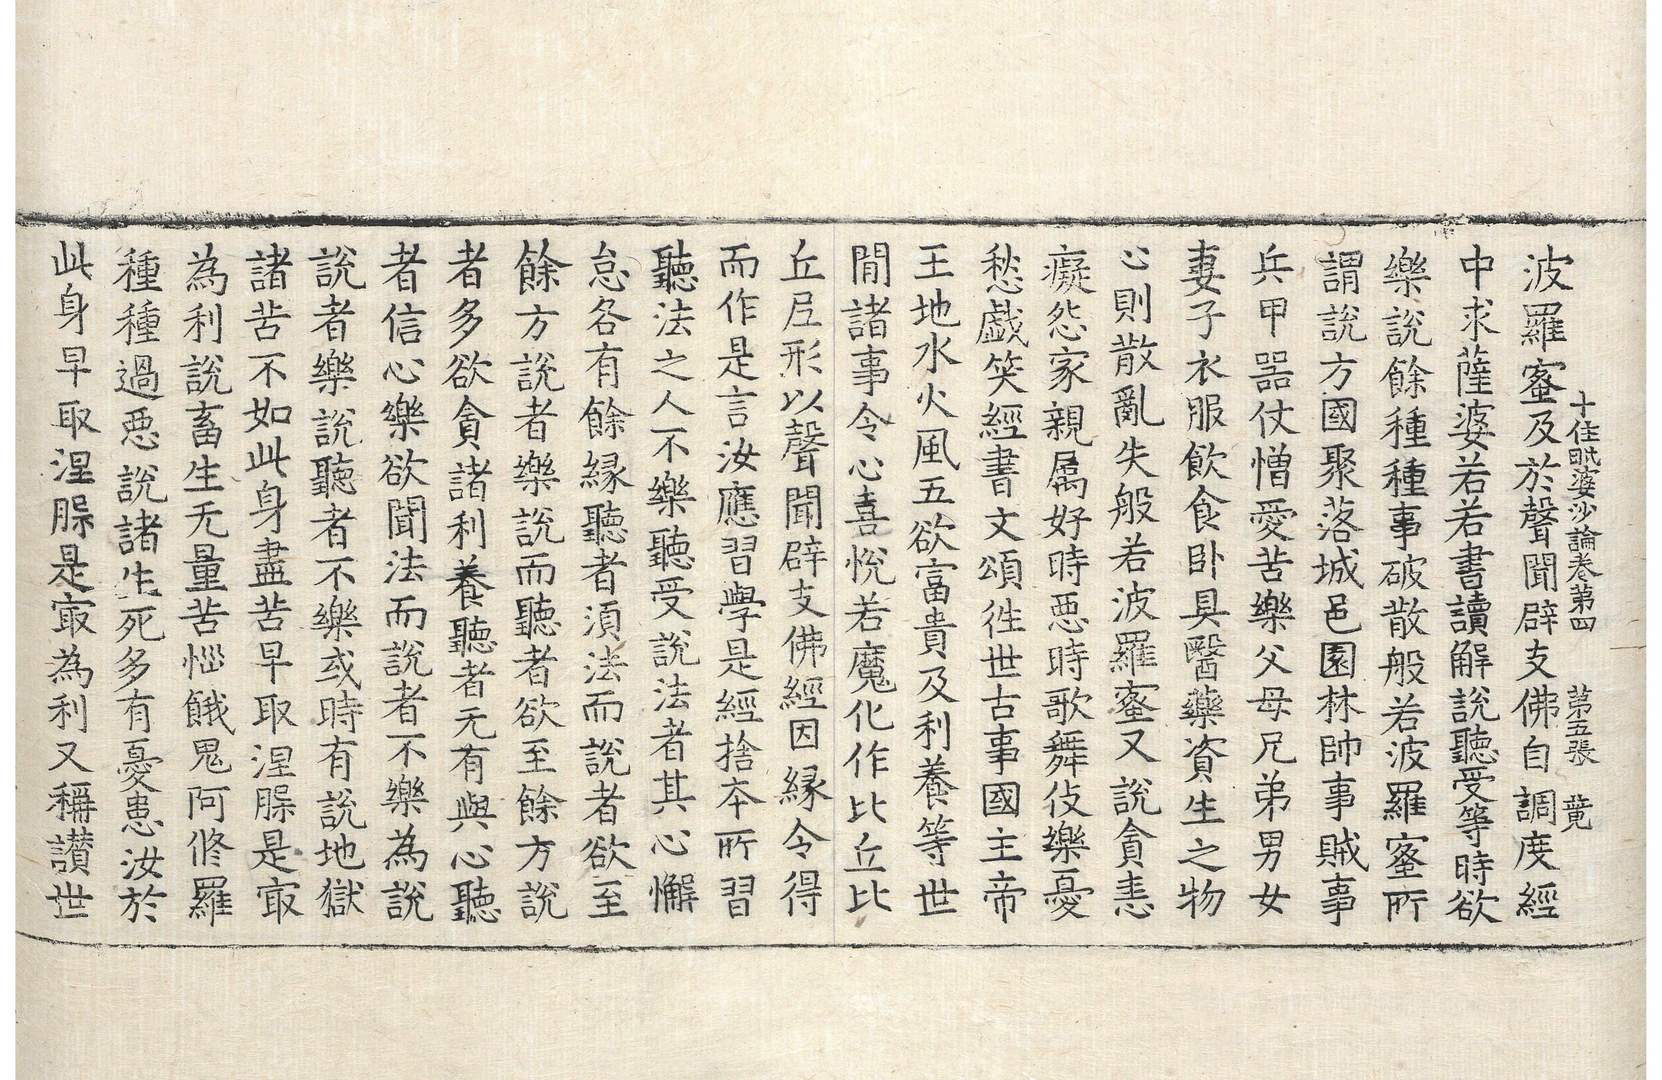 十住毗婆沙論卷第四　第五張　萛
波羅蜜及於聲聞辟支佛自調度經
中求薩婆若若書讀解說聽受等時欲
樂說餘種種事破散般若波羅蜜所
謂說方國聚落城邑園林帥事賊事
兵甲器仗憎愛苦樂父母兄弟男女
妻子衣服飮食卧具醫藥資生之物
心則散亂失般若波羅蜜又說貪恚
癡怨家親属好時惡時歌舞伎樂憂
愁戱笑經書文頌徃世古事國主帝
王地水火風五欲富貴及利養等世
閒諸事令心喜悅若魔化作比丘比
丘尼形以聲聞辟支佛經因緣令得
而作是言汝應習學是經捨夲所習
聽法之人不樂聽受說法者其心懈
怠各有餘緣聽者湏法而說者欲至
餘方說者樂說而聽者欲至餘方說
者多欲貪諸利養聽者无有與心聽
者信心樂欲聞法而說者不樂為說
說者樂說聽者不樂或時有說地獄
諸苦不如此身盡苦早取涅槃是㝡
為利說畜生无量苦惱餓鬼阿脩羅
種種過惡說諸生死多有憂患汝於
此身早取涅槃是㝡為利又稱讃世